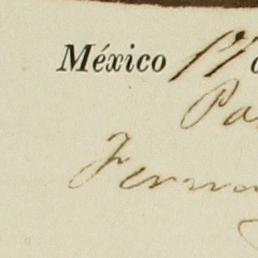 México 17
Pa
Fern